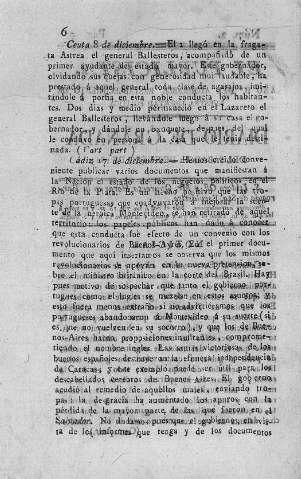 6
Ceuta 8 de diciembre. = El 1 llegó en la fraga-
ta Astrea el general Ballesteros, acompañado de un
primer ayudante del estado mayor. Este gobernador,
olvidando sus quejas con generosidad muy laudable, ha
prestado á aquel general toda clase de agasajos, imi-
tándole á porfia en esta noble conducta los habitan-
tes. Dos dias y medio permaneció en el Lazareto el
general Ballesteros, llevándole luego á su casa el go-
bernador, y dándole un banquete, despues del qual
le conduxo en persona á la casa que le tenia desti-
nada. (Cart. part)
Cádiz 17 de diciembre. = Hemos creido conve-
niente publicar varios documentos que manifiestan á
la Nacion el estado de los negocios políticos en el
Rio de la Plata. Es un hecho positivo que las tro-
pas portuguesas que
de la heroica Montevideo, se han retirado de aquel
territorio: los papeles públicos han dado á conocer
que esta conducta fue efecto de un convenio con los
revolucionarios de Buenos-Ayres. En el primer docu-
mento que aquí insertamos se observa que los mismos
revolucionarios se apoyan en la
bre el ministro británico en la corte del Brasil. Hay
pues motivo de sospechar que tanto el gobierno por-
tugues como el ingles se mezclan en estos asuntos y
eso fuera menos extraño si no advirtiesemos que los
portugueses abandonaron á Montevideo á su suerte (si
es que no vuelven á su socorro), y que los de Bue-
nos-Aires hacen proposiciones insultantes, comprome-
tiendo el nombre ingles. Las
buenos españoles destruyeron la efímera independencia
de Caracas, y este exemplo puede ser útil para los
descabellados cerebros de Buenos Aires. El gobierno
acudió al remedio de aquellos males, enviando tro-
pas: la desgracia ha aumentado los apuros con la
pérdida de la mayor parte de las que fueron en el
Salvador. No dudamos pues que el gobierno, en vis-
ta de los informes que tenga y de los documentos